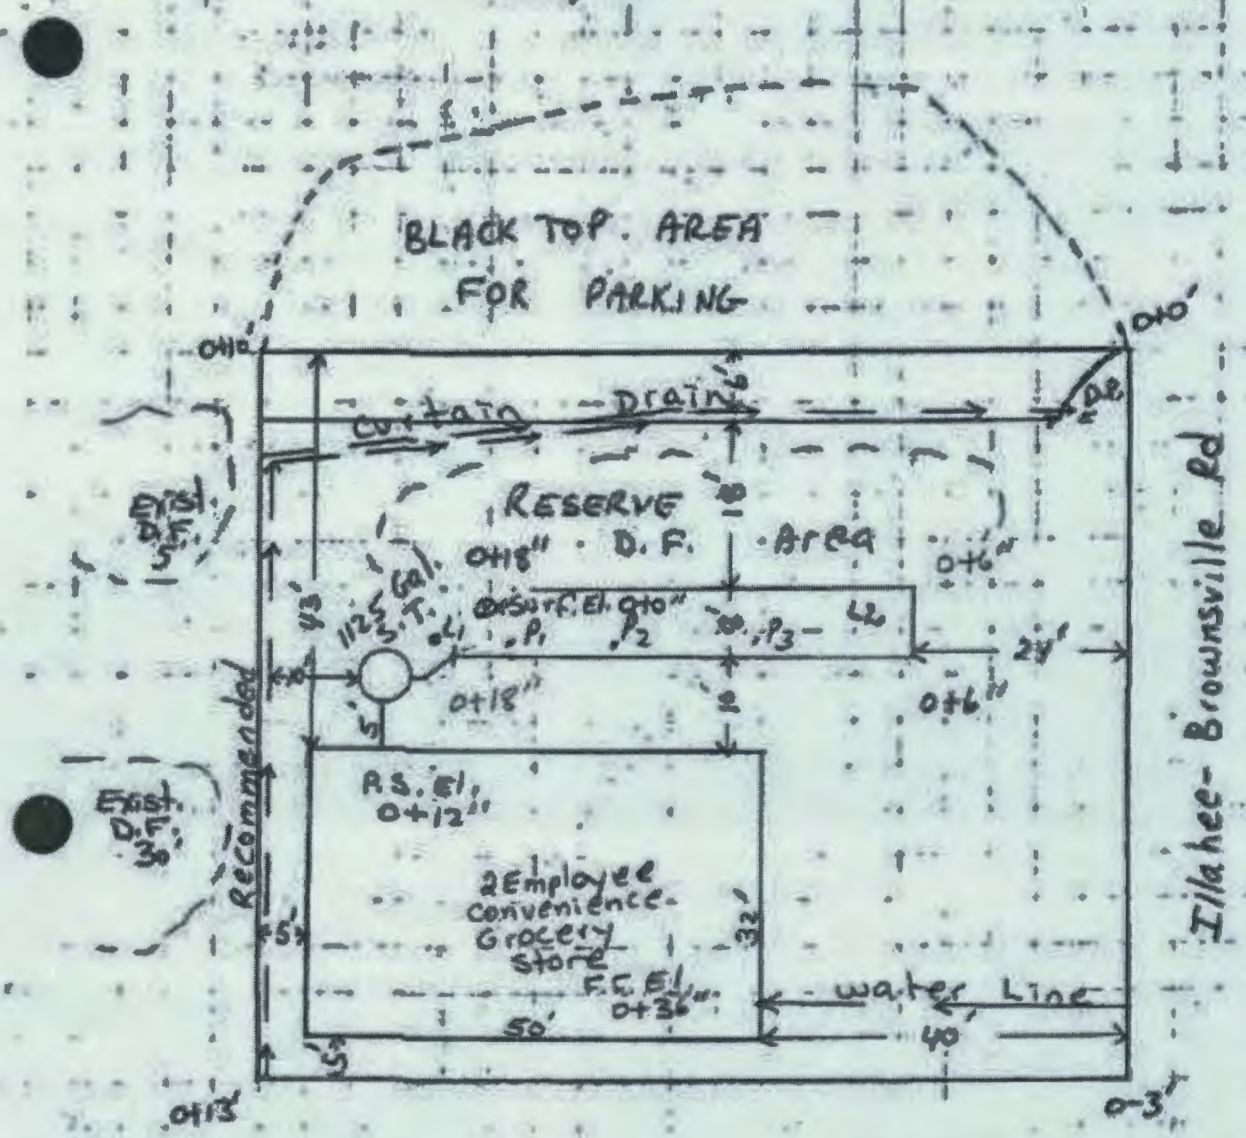 BLACK TOP. AREA
FOR PARKING
0+10'
0+0'
6'
Curtain Drain
Exist
D.F.
5'
RESERVE
D.F. Area
18'
0+18"
0+6"
1125 Gal.
S.T.
Surf. El. 0+0"
L1
P1
P2
P3
L2
43'
10'
24'
0+18"
0+6"
5'
10'
Recommended
Exist.
D.F.
30'
P.S. El.
0+12"
2 Employee
Convenience
Grocery
Store
F.F. El.
0+36"
32'
5'
50'
5'
Water Line
40'
0+13'
0-3'
Illahee- Brownsville Rd